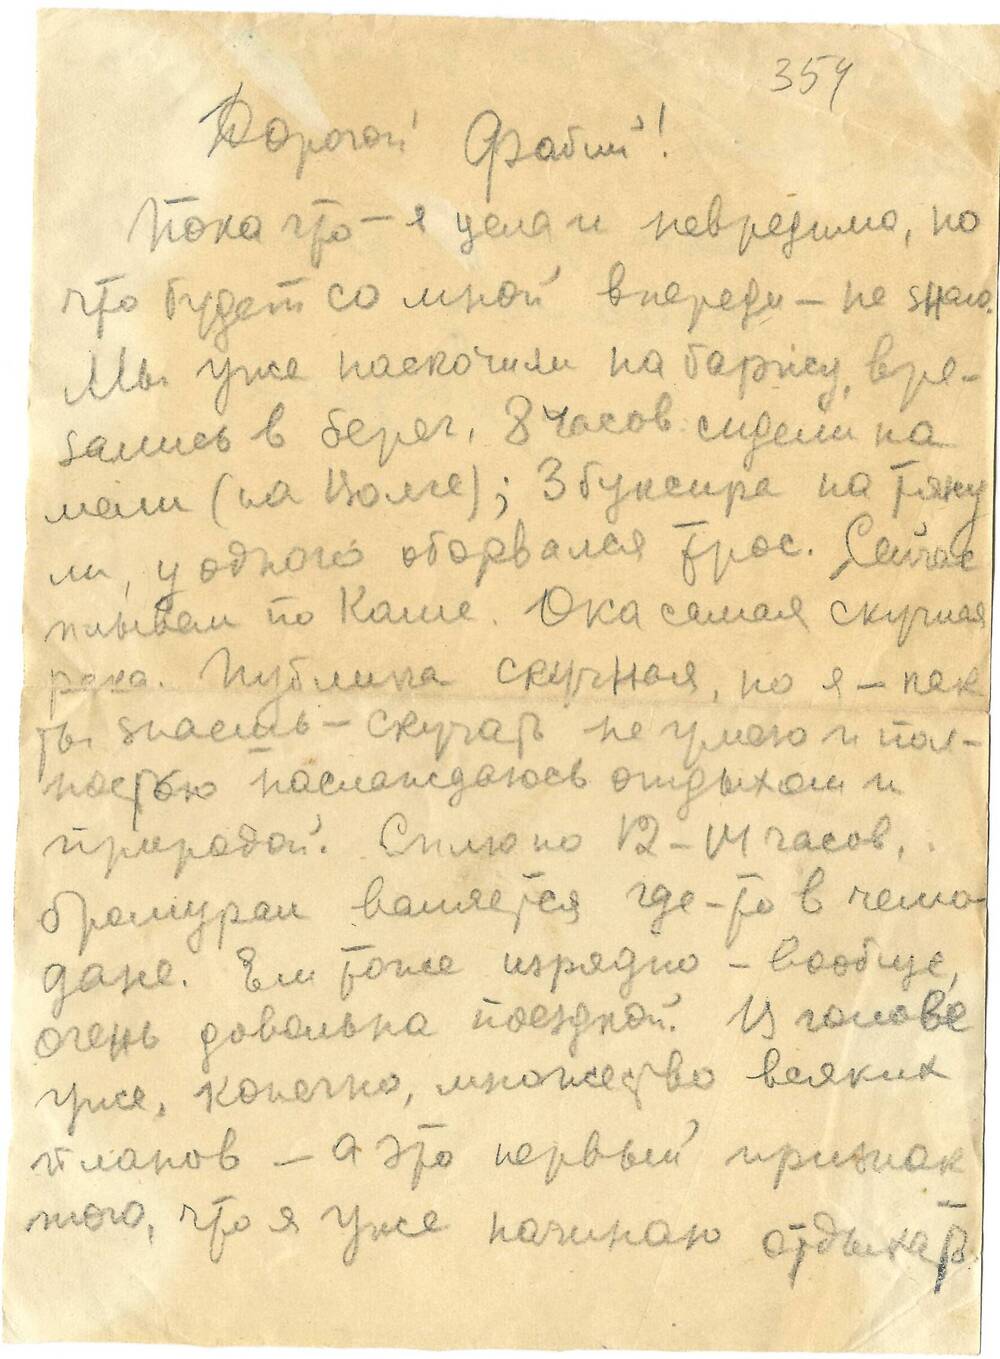 354
Дорогой Фабий!
Пока что – я цела и невредима, но
что будет со мной впереди – не знаю.
Мы уже наскочили на баржу, вре-
зались в берег, 8 часов сидели на
мели (на Волге); 3 буксира на тяну
ли, у одного оборвался трос. Сейчас
плывем по Каме. Ока самая скучная
река. Публика скучная, но я – как
ты знаешь – скучать не умею и пол-
ностью наслаждаюсь отдыхом и
природой. Сплю по 12–14 часов,
бромурал валяется где-то в чемо-
дане. Ем тоже изрядно – вообще,
очень довольна поездкой. В голове
уже, конечно, множество всяких
планов – а это первый признак
того, что я уже начинаю отдыхать.